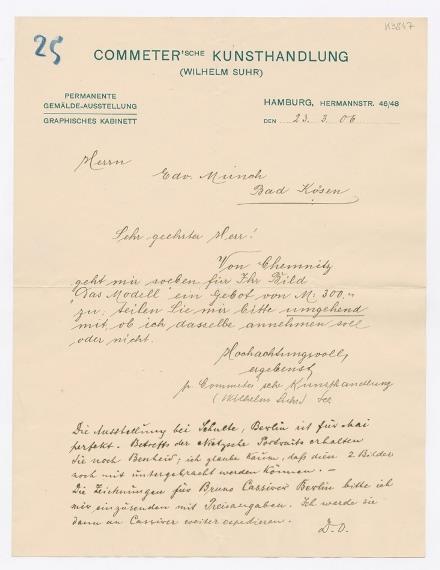 25
K3847
COMMETER'SCHE KUNSTHANDLUNG
(WILHELM SUHR)
PERMANENTE
GEMÄLDE-AUSSTELLUNG
GRAPHISCHES KABINETT
HAMBURG, HERMANNSTR. 46/48
DEN 23. 3. 06
Herrn
Edv. Münch
Bad Kösen
Sehr geehrter Herr!
Von Chemnitz
geht mir soeben für Ihr Bild
"Das Modell" ein Gebot von M: 300.-
zu; teilen Sie mir bitte umgehend
mit, ob ich dasselbe annehmen soll
oder nicht.
Hochachtungsvoll,
ergebenst
p. Commeter'sche Kunsthandlung
(Wilhelm Suhr)
Die Ausstellung bei Schulte, Berlin ist für Mai
perfekt. Betreffs der Nietzsche Portraits erhalten
Sie noch Bescheid; ich glaube kaum, dass diese 2 Bilder
noch mit untergebracht werden können. -
Die Zeichnungen für Bruno Cassirer Berlin bitte ich
mir einzusenden mit Preisangaben. Ich werde sie
dann an Cassirer weiter expedieren.
D. O.